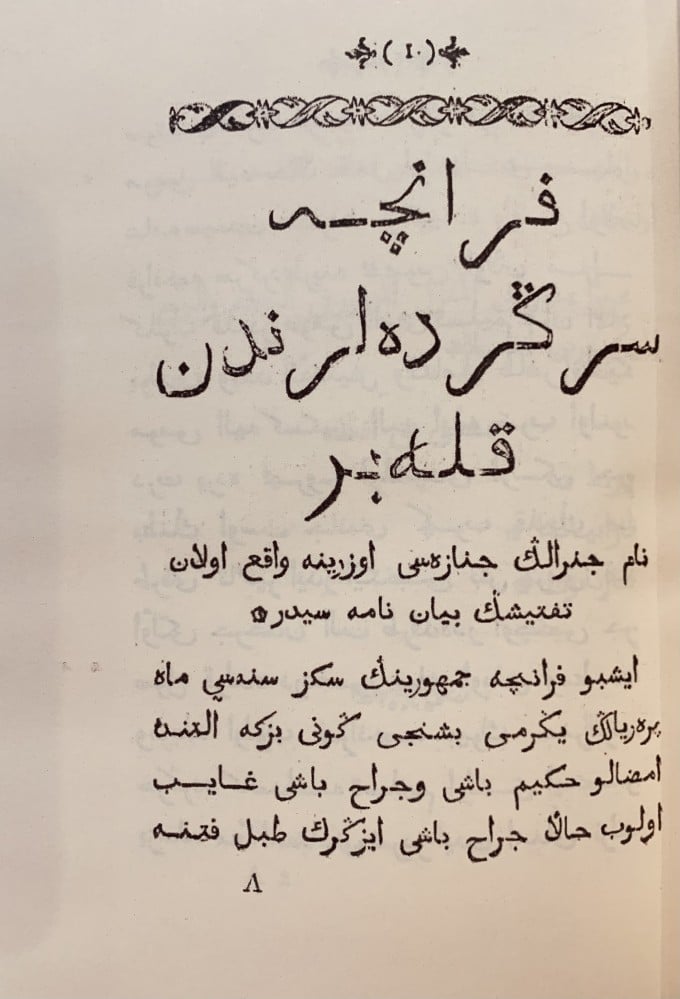 ( ١٠ )
فرانچه
سرڭرده‌لرندن
قله‌بر
نام جنرالڭ جنازه‌سی اوزرینه واقع اولان
تفتیشڭ بیان نامه سیدر
ایشبو فرانچه جمهورینڭ سكز سنه‌سی ماه
پره‌ریالڭ یڭرمی بشنجی ڭونی بزكه التنده
امضالو حكیم باشی وجراح باشی غایب
اولوب حالا جراح باشی ایزڭرك طبل فتنه
٨